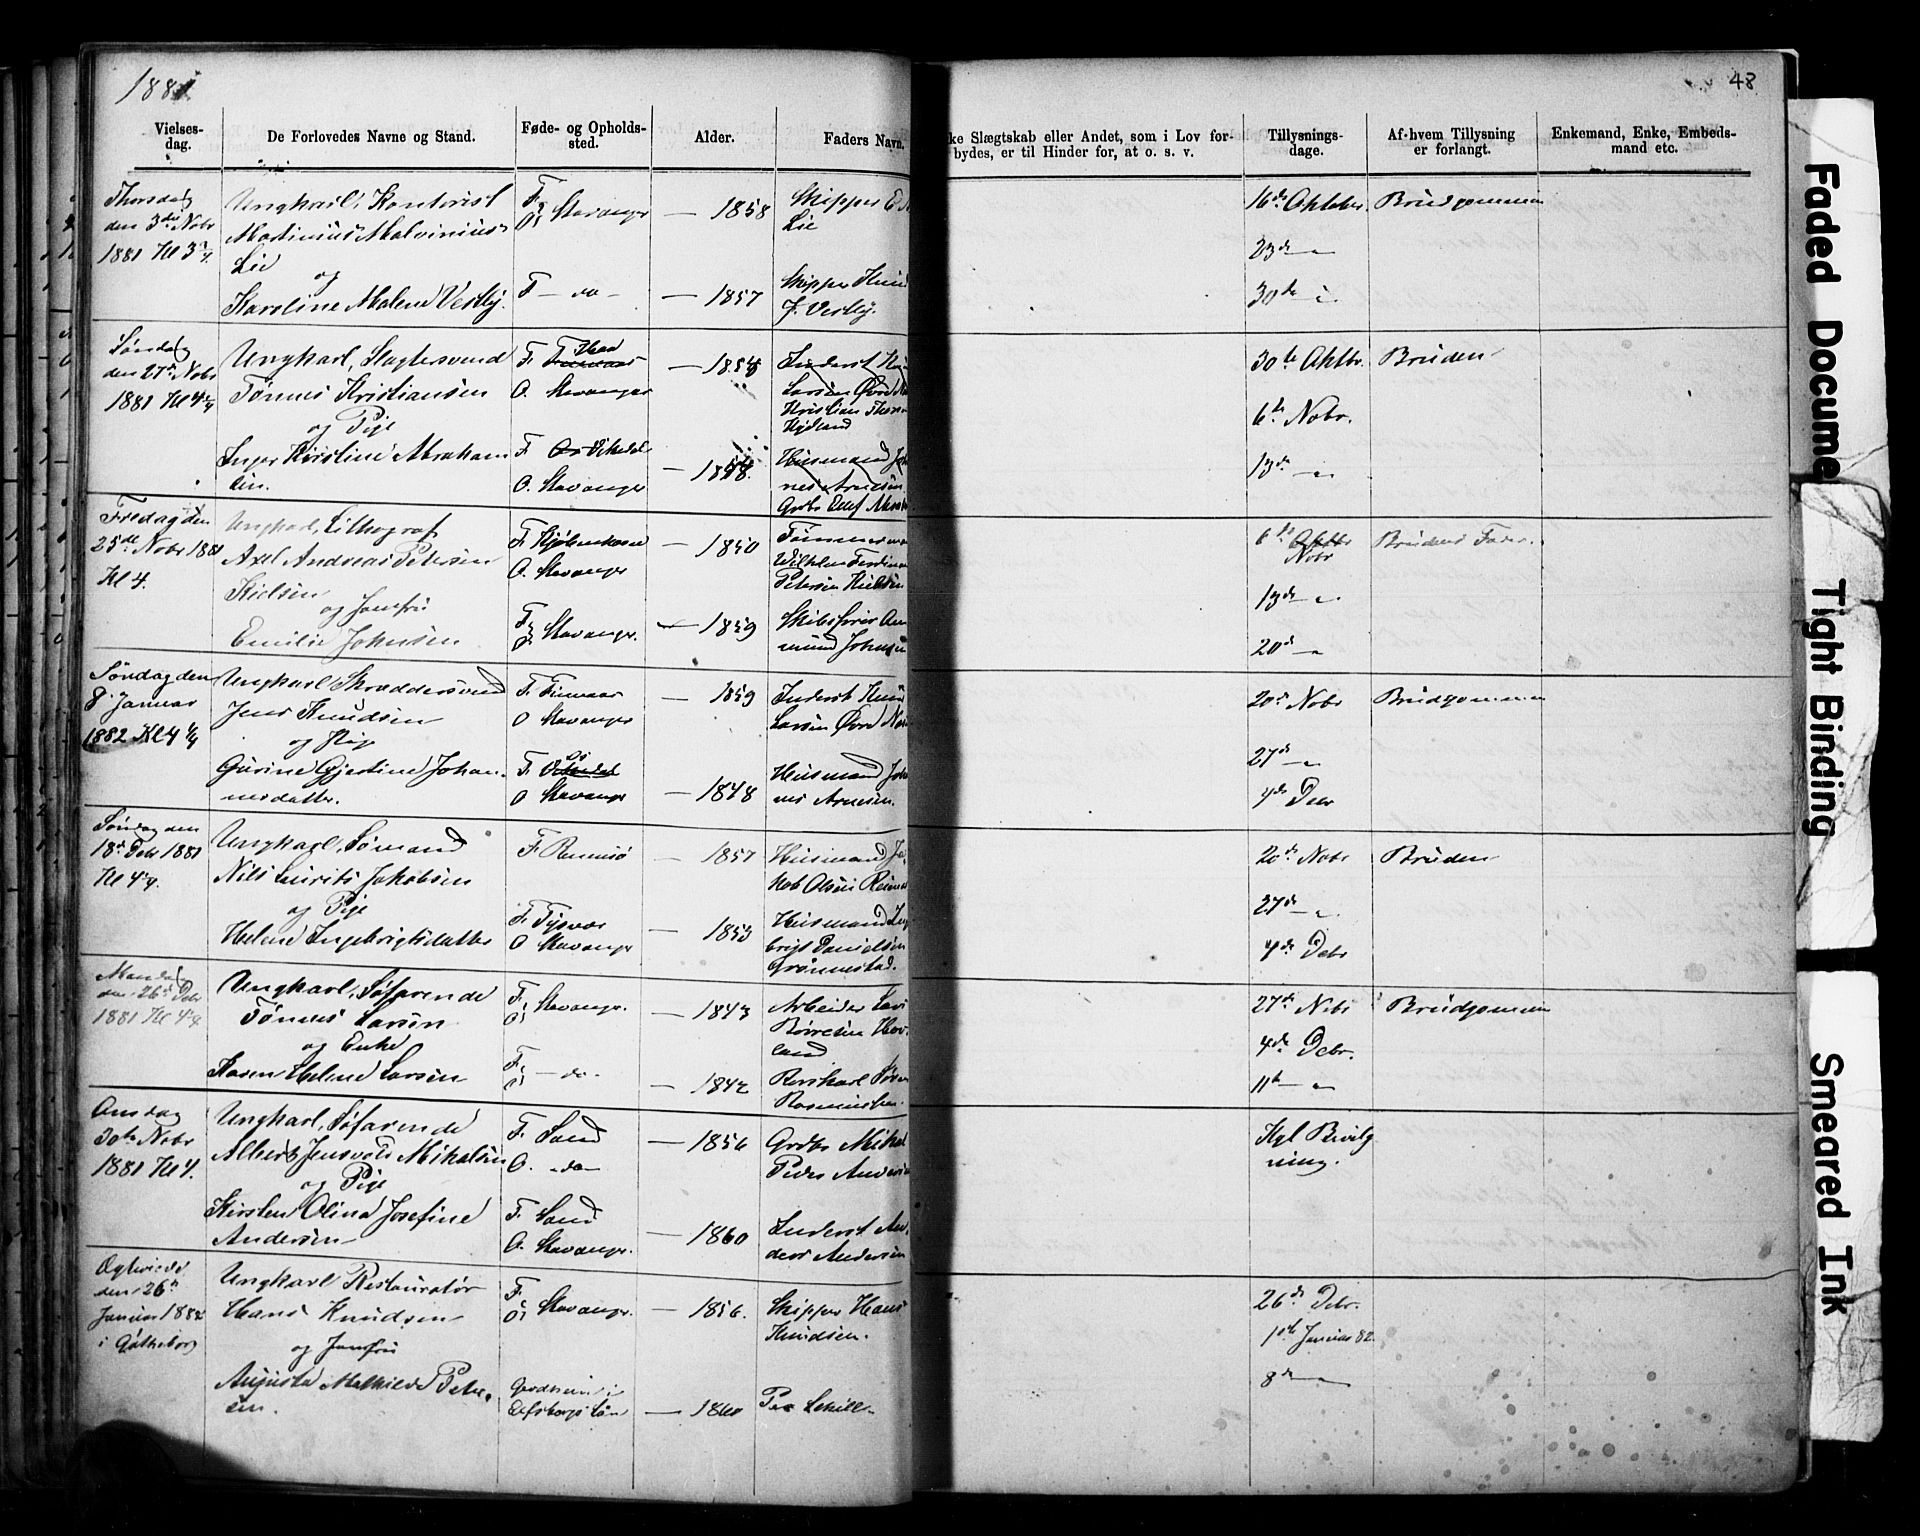 1881
48
Vielses-
dag.
De Forlovedes Navne og Stand.
Føde- og Opholds-
sted.
Alder.
Faders Navn.
ke Slægtskab eller Andet, som i Lov for-
bydes, er til Hinder for, at o. s. v.
Tillysnings-
dage.
Af hvem Tillysning
er forlangt.
Enkemand, Enke, Embeds-
mand etc.
Thorsdag
den 3die Nobr
1881 Kl 3
Ungkarl, Kontorist
Martinius Malvinius
Lie
og
Karoline Malene Vestby.
F. & O. Stavanger
F — do —
— 1858
— 1857
Skipper
Lie
Skipper Knud
J. Vestby.
16de Oktober.
23de — "
30te — "
Brudgommen
Søndag
den 27de Nobr
1881 Kl 4
Ungkarl, Slagtersvend
Tønnes Kristiansen
og Pige
Inger Kirstine Abraham
sen.
F.
O. Stavanger
F. Vikedal
O. Stavanger
— 1854
Inderst
Larsen Øvre
Kristian
Husmand Joh
nes Arnesen
Grdbr.
30te Oktbr.
6te Nobr.
13de — "
Bruden
Fredag den
25de Nobr 1881
Kl 4.
Ungkarl, Lithograf
Axel Andreas Petersen
Kielsen
og Jomfru
Emilie Johnsen
F. Kjøbenhavn
O. Stavanger
F. & O. Stavanger.
— 1850
— 1859
Tømmerm
Wilhelm Ferdinan
Petersen Kielsen
Skibsfører
mund Johnsen
6te Oktbr
Nobr
13de — "
20de — "
Brudens Fader.
Søndag den
8. Januar
1882 Kl 4 1/4
Ungkarl Skræddersvend
Jens Knudsen
og Pige
Gurine Gjertine Johan-
nesdatter.
F.
O Stavanger
F. Vikedal
O Stavanger
— 1859
— 1848
Inderst Knud
Larsen Øvre
Husmand Joh
nes Arnesen.
20de Nobr
27de — "
4de Debr
Brudgommen
Søndag den
18de Debr 1881
Kl 4
Ungkarl, Sømand
Nils Lurits Jakobsen
og Pige
Helene Ingebrigtsdatter
F. Rennesø
F. Tysvær
O. Stavanger
— 1857
— 1853
Husmand Ja-
kob Olsen
Husmand Inge
brigt Danielsen
Grønnestad.
20de Nobr
27de — "
4de Debr
Bruden
Mandag
den 26de Debr
1881 Kl 4
Ungkarl, Søfarende
Tønnes Larsen
og Enke
Karen Helene Larsen
F. & O. Stavanger.
F. & O. — do.
— 1843
— 1842
Arbeider Lars
Børresen Hov-
land
Rorskarl
Rasmussen.
27de Nobr
4de Debr.
11te — "
Brudgommen
Onsdag
30te Nobr
1881 Kl 4.
Ungkarl, Søfarende
Albert Jensvold Mikalsen
og Pige
Kirsten Olina Josefine
Andersen
F. Sand
O. — do —
F. Sand
O. Stavanger.
— 1856
— 1860
Grdbr Mikal
Peder Andersen
Inderst An-
ders Andersen
Kgl Bevilg
ning.
Egteviede
den 26de
Januar 1882
i Gøtheborg
Ungkarl Restauratør
Hans Knudsen
og Jomfru
Augusta Mathilde Peter-
sen.
F. & O. Stavanger.
Elfsborgs Län
— 1856.
— 1860
Skipper Hans
Knudsen.
26de Debr.
1ste Januar 82.
8de —
Faded Docume
Tight Binding
Smeared Ink